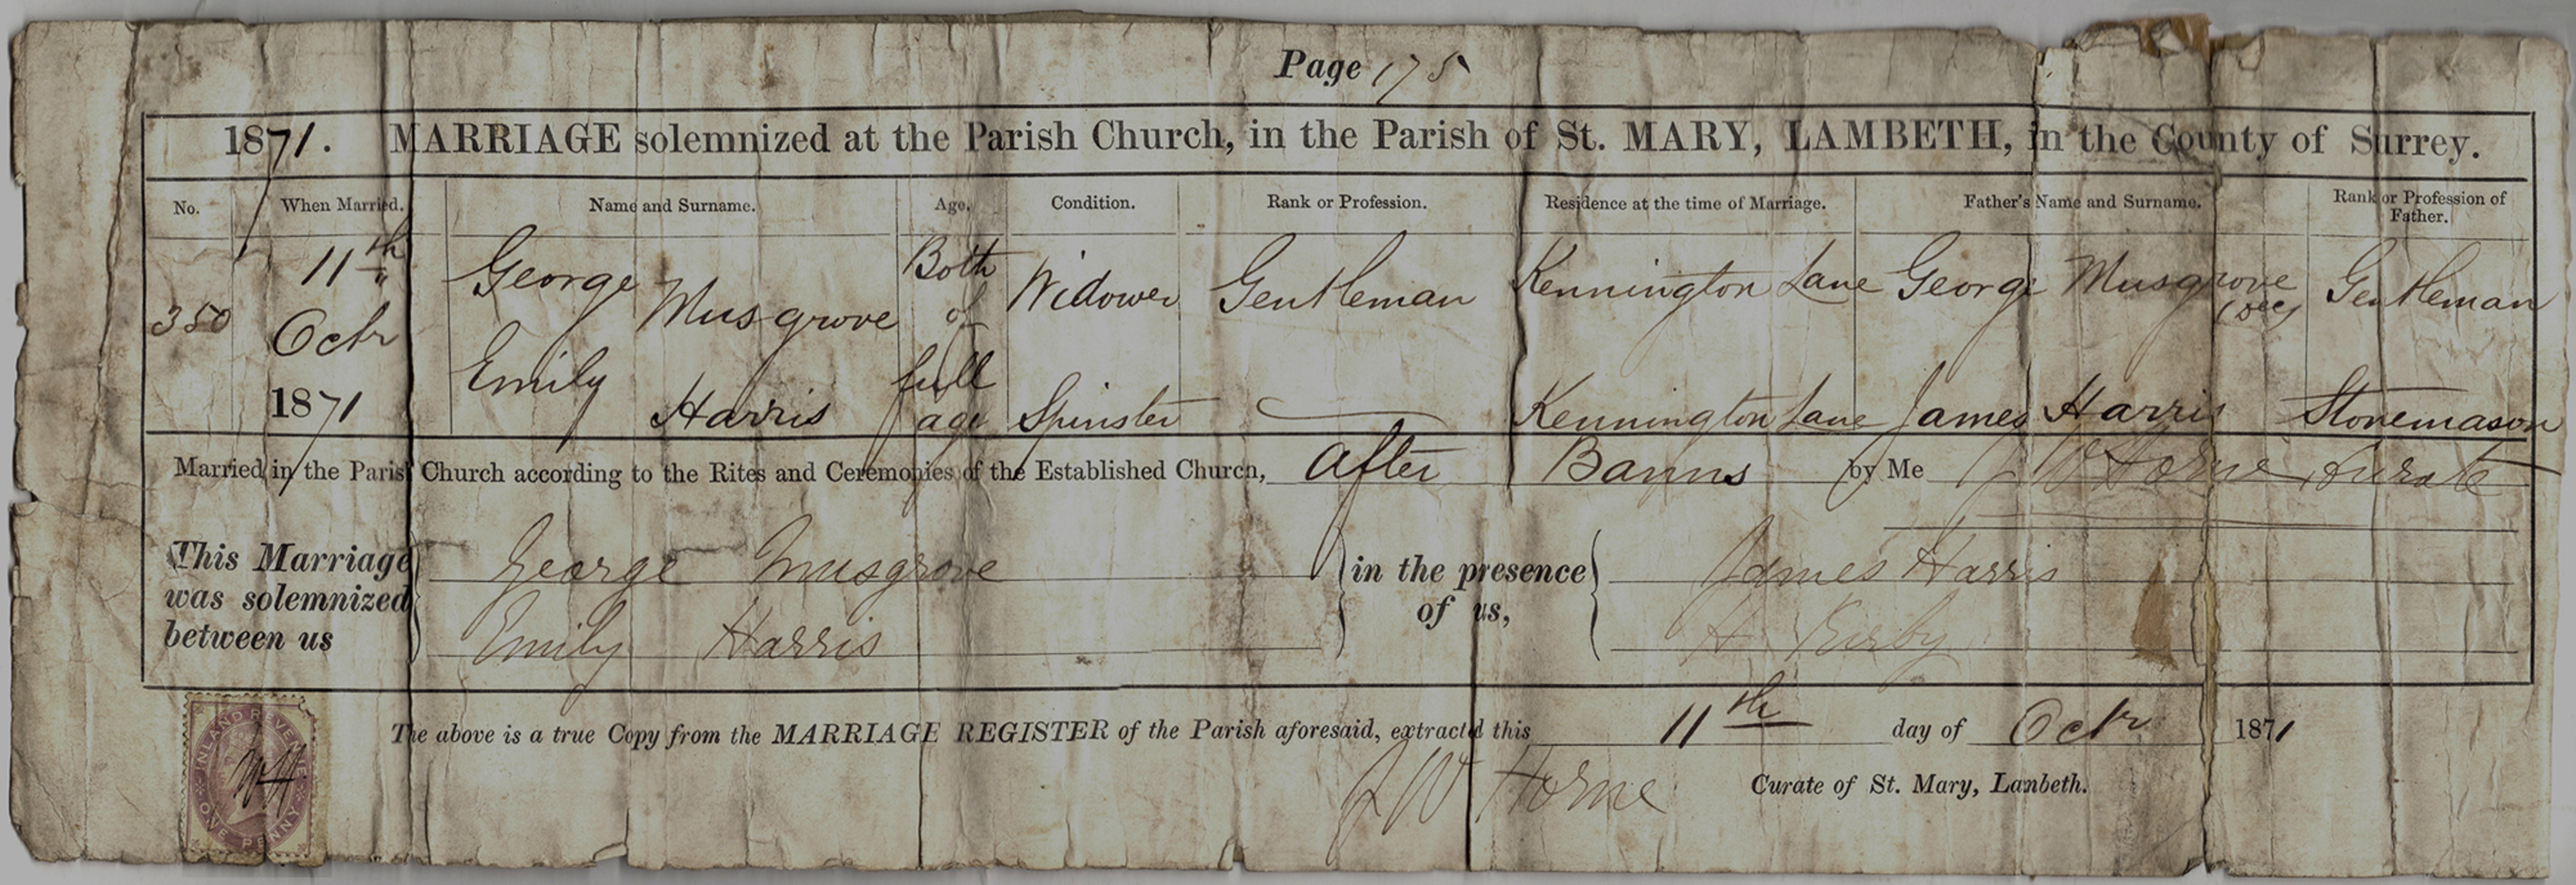 Page 175
1871. MARRIAGE solemnized at the Parish Church, in the Parish of St. MARY, LAMBETH, in the County of Surrey.
No. When Married. Name and Surname. Age. Condition. Rank or Profession. Residence at the time of Marriage. Father's Name and Surname. Rank or Profession of Father.
350 11th Octr 1871
George Musgrove Both of full age Widower Gentleman Kennington Lane George Musgrove (Dec) Gentleman
Emily Harris Spinster Kennington Lane James Harris Stonemason
Married in the Parish Church according to the Rites and Ceremonies of the Established Church, After Banns by Me J W Horne Curate
This Marriage was solemnized between us
George Musgrove
Emily Harris
in the presence of us,
James Harris
H Kirby
The above is a true Copy from the MARRIAGE REGISTER of the Parish aforesaid, extracted this 11th day of Octr 1871
J W Horne Curate of St. Mary, Lambeth.
INLAND REVENUE
ONE PENNY